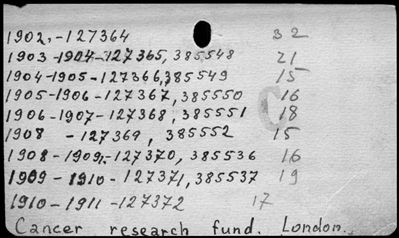 1902,-127364 32
1903-1904-127365,385548 21
1904-1905-127366,385549 15
1905-1906-127367,385550 16
1906-1907-127368,385551 18
1908 -127369, 385552 15
1908-1909,-127370,385536 16
1909-1910-127371,385537 19
1910-1911-127372 17
Cancer research fund. London.